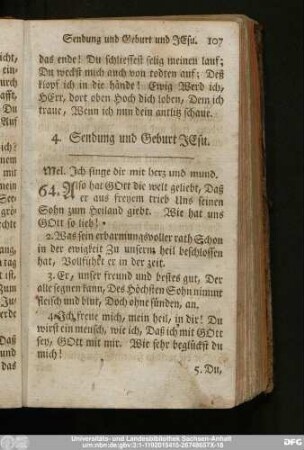 Sendung und Geburt JEsu. 107
das ende! Du schliessest selig meinen lauf;
Du weckst mich auch von todten auf; Deß
klopf ich in die hände! Ewig Werd ich,
HErr, dort oben Hoch dich loben, Dem ich
traue, Wenn ich nun dein antlitz schaue.
4. Sendung und Geburt JEsu.
Mel. Ich singe dir mit herz und mund.
64. Also hat GOtt die welt geliebt, Daß
er aus freyem trieb Uns seinen
Sohn zum Heiland giebt. Wie hat uns
GOtt so lieb!
2. Was sein erbarmungsvoller rath Schon
in der ewigkeit Zu unserm heil beschlossen
hat, Vollführt er in der zeit.
3. Er, unser freund und bestes gut, Der
alle segnen kann, Des Höchsten Sohn nimmt
fleisch und blut, Doch ohne sünden, an.
4. Ich freue mich, mein heil, in dir! Du
wirst ein mensch, wie ich, Daß ich mit GOtt
sey, GOtt mit mir. Wie sehr beglückst du
mich!
5. Du,
Universitäts- und Landesbibliothek Sachsen-Anhalt
DFG